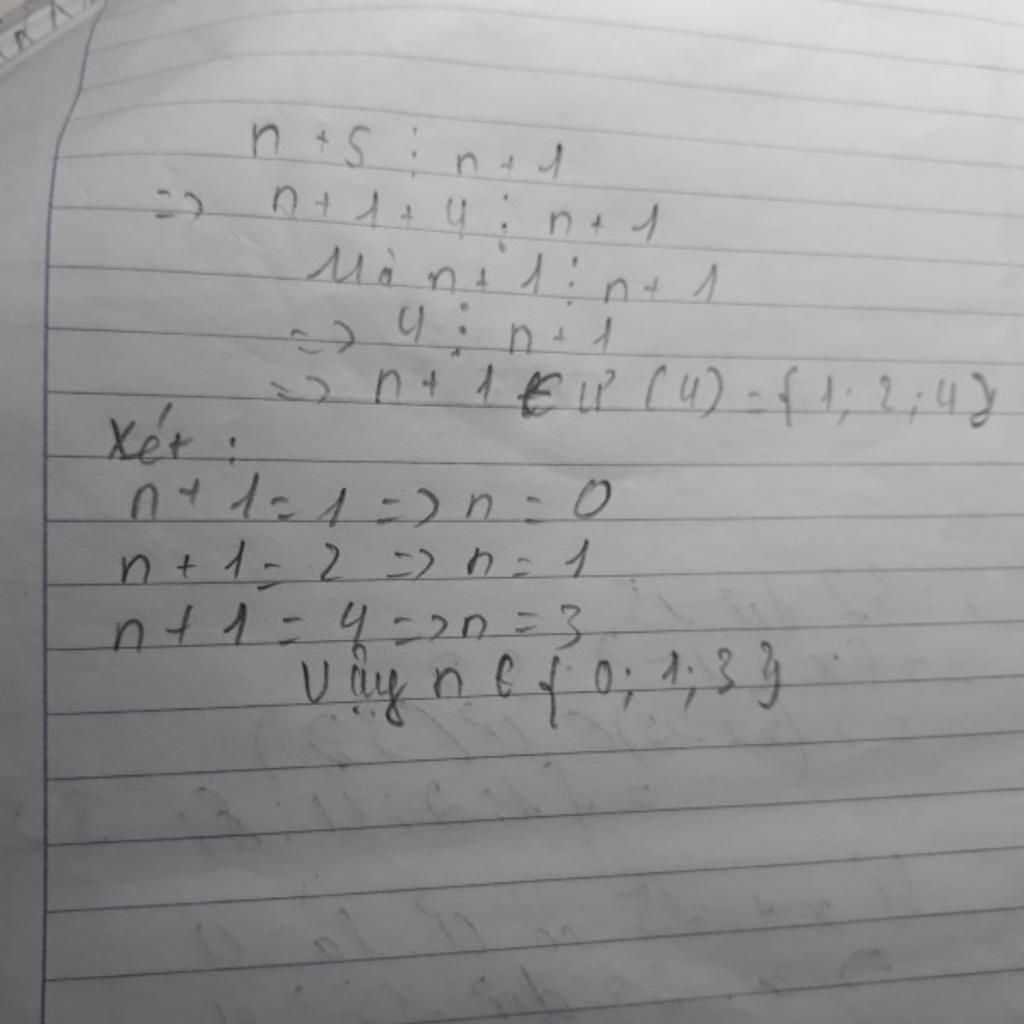 n + 5 ⋮ n + 1
=> n + 1 + 4 ⋮ n + 1
Mà n + 1 ⋮ n + 1
=> 4 ⋮ n + 1
=> n + 1 ∈ Ư (4) = { 1 ; 2 ; 4 }
Xét :
n + 1 = 1 => n = 0
n + 1 = 2 => n = 1
n + 1 = 4 => n = 3
Vậy n ∈ { 0 ; 1 ; 3 }